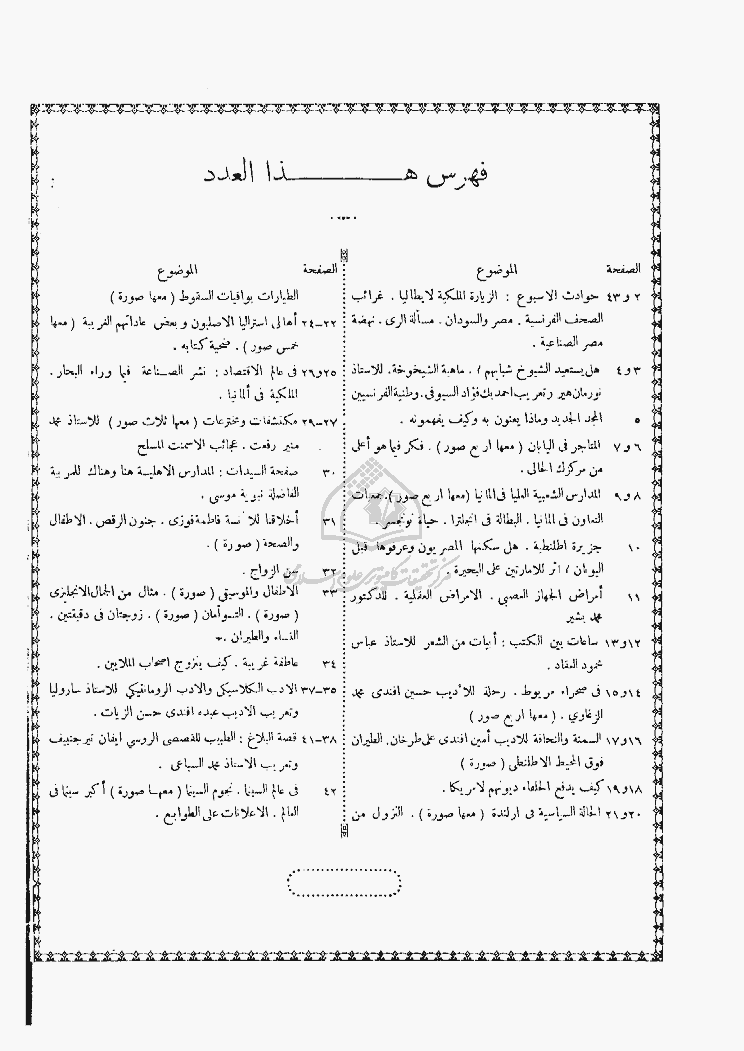 فهرس هــــــذا العدد
الصفحة الموضوع
٢ و ٤٣ حوادث الاسبوع : الزيارة الملكية لايطاليا . غرائب
الصحف الفرنسية . مصر والسودان . مسألة الرى . نهضة
مصر الصناعية .
٣ و ٤ هل يستعيد الشيوخ شبابهم ؟ . ماهية الشيخوخة . للاستاذ
نورمان هير وتعريب احمد بك فؤاد السيوفى . وطنية الفرنسيين
٥ المجد الجديد وماذا يعنون به وكيف يفهمونه .
٦ و ٧ المتاجر فى اليابان ( معها اربع صور ) . فكر فيما هو أعلى
من مركزك الحالى .
٨ و ٩ المدارس الشعبية العليا فى المانيا (معها اربع صور) . جمعيات
التعاون فى المانيا . البطالة فى انجلترا . حياة
١٠ جزيرة اطلنطية . هل سكنها المصريون وعرفوها قبل
اليونان ؟ اثر للامارتين على البحيرة .
١١ أمراض الجهاز العصبى . الامراض العقلية . للدكتور
محمد بشير
١٢ و ١٣ ساعات بين الكتب : أبيات من الشعر للاستاذ عباس
محمود العقاد .
١٤ و ١٥ فى صحراء مريوط . رحلة للأديب حسين افندى محمد
الزغاوي . ( معها اربع صور )
١٦ و ١٧ السمنة والنحافة للاديب أمين افندى على طرخان . الطيران
فوق المحيط الاطلنطى ( صورة )
١٨ و ١٩ كيف يدفع الحلفاء ديونهم لامريكا .
٢٠ و ٢١ الحالة السياسية فى ارلندة ( معها صورة ) . النزول من
الصفحة الموضوع
الطيارات بواقيات السقوط ( معها صورة )
٢٢—٢٤ أهالى استراليا الاصليون وبعض عاداتهم الغريبة ( معها
خمس صور ) . ضحية كتابه .
٢٥ و ٢٦ فى عالم الاقتصاد : نشر الصــناعة فيما وراء البحار .
الملكية فى ألمانيا .
٢٧—٢٩ مكتشفات ومخترعات ( معها ثلاث صور ) للاستاذ محمد
منير رفعت . عجائب الاسمنت المسلح
٣٠ صفحة السيدات : المدارس الاهلية هنا وهناك للمربية
الفاضلة نبوية موسى .
٣١ أخلاقنا للآنسة فاطمة فوزى . جنون الرقص . الاطفال
والصحة ( صورة ) .
٣٢ سن الزواج .
٣٣ الاطفال والموسيقى ( صورة ) . مثال من الجمال الانجليزى
( صورة ) . التــوأمان ( صورة ) . زوجتان فى دقيقتين .
النساء والطيران .
٣٤ عاطفة غريبة . كيف يتزوج اصحاب الملايين .
٣٥—٣٧ الادب الكلاسيكى والادب الرومانتيكي للاستاذ ساروليا
وتعريب الاديب عبده افندى حسن الزيات .
٣٨—٤١ قصة البلاغ : الطبيب للقصصى الروسي ايفان تيرجنيف
وتعريب الاستاذ محمد السباعى .
٤٢ فى عالم السينما . نجوم السينما ( معهــا صورة ) أكبر سينما فى
العالم . الاعلانات على الطوابع .